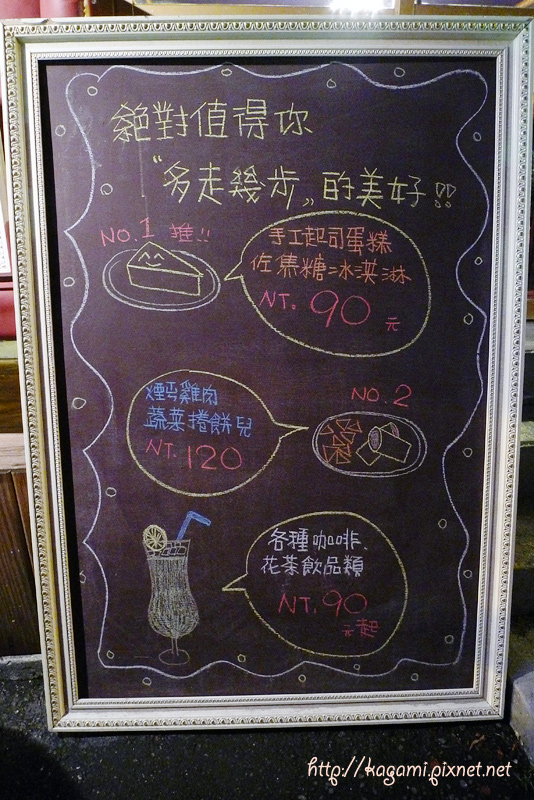 絕對值得你
"多走幾步"的美好!!
NO.1 推!!
手工起司蛋糕
佐焦糖冰淇淋
NT. 90 元
煙燻雞肉
蔬菜捲餅兒
NT. 120
NO.2
各種咖啡、
花茶飲品類
NT. 90
元起
http://kagami.pixnet.net